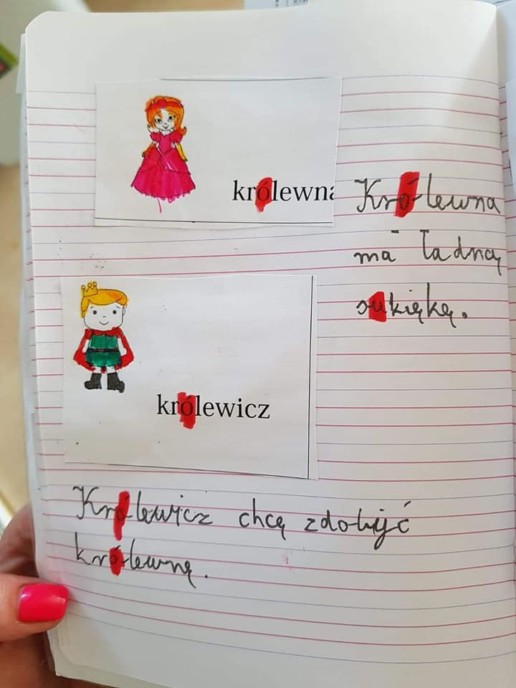 królewna
Królewna
ma ładną
sukiękę.
królewicz
Królewicz chcę zdobyć
królewnę.